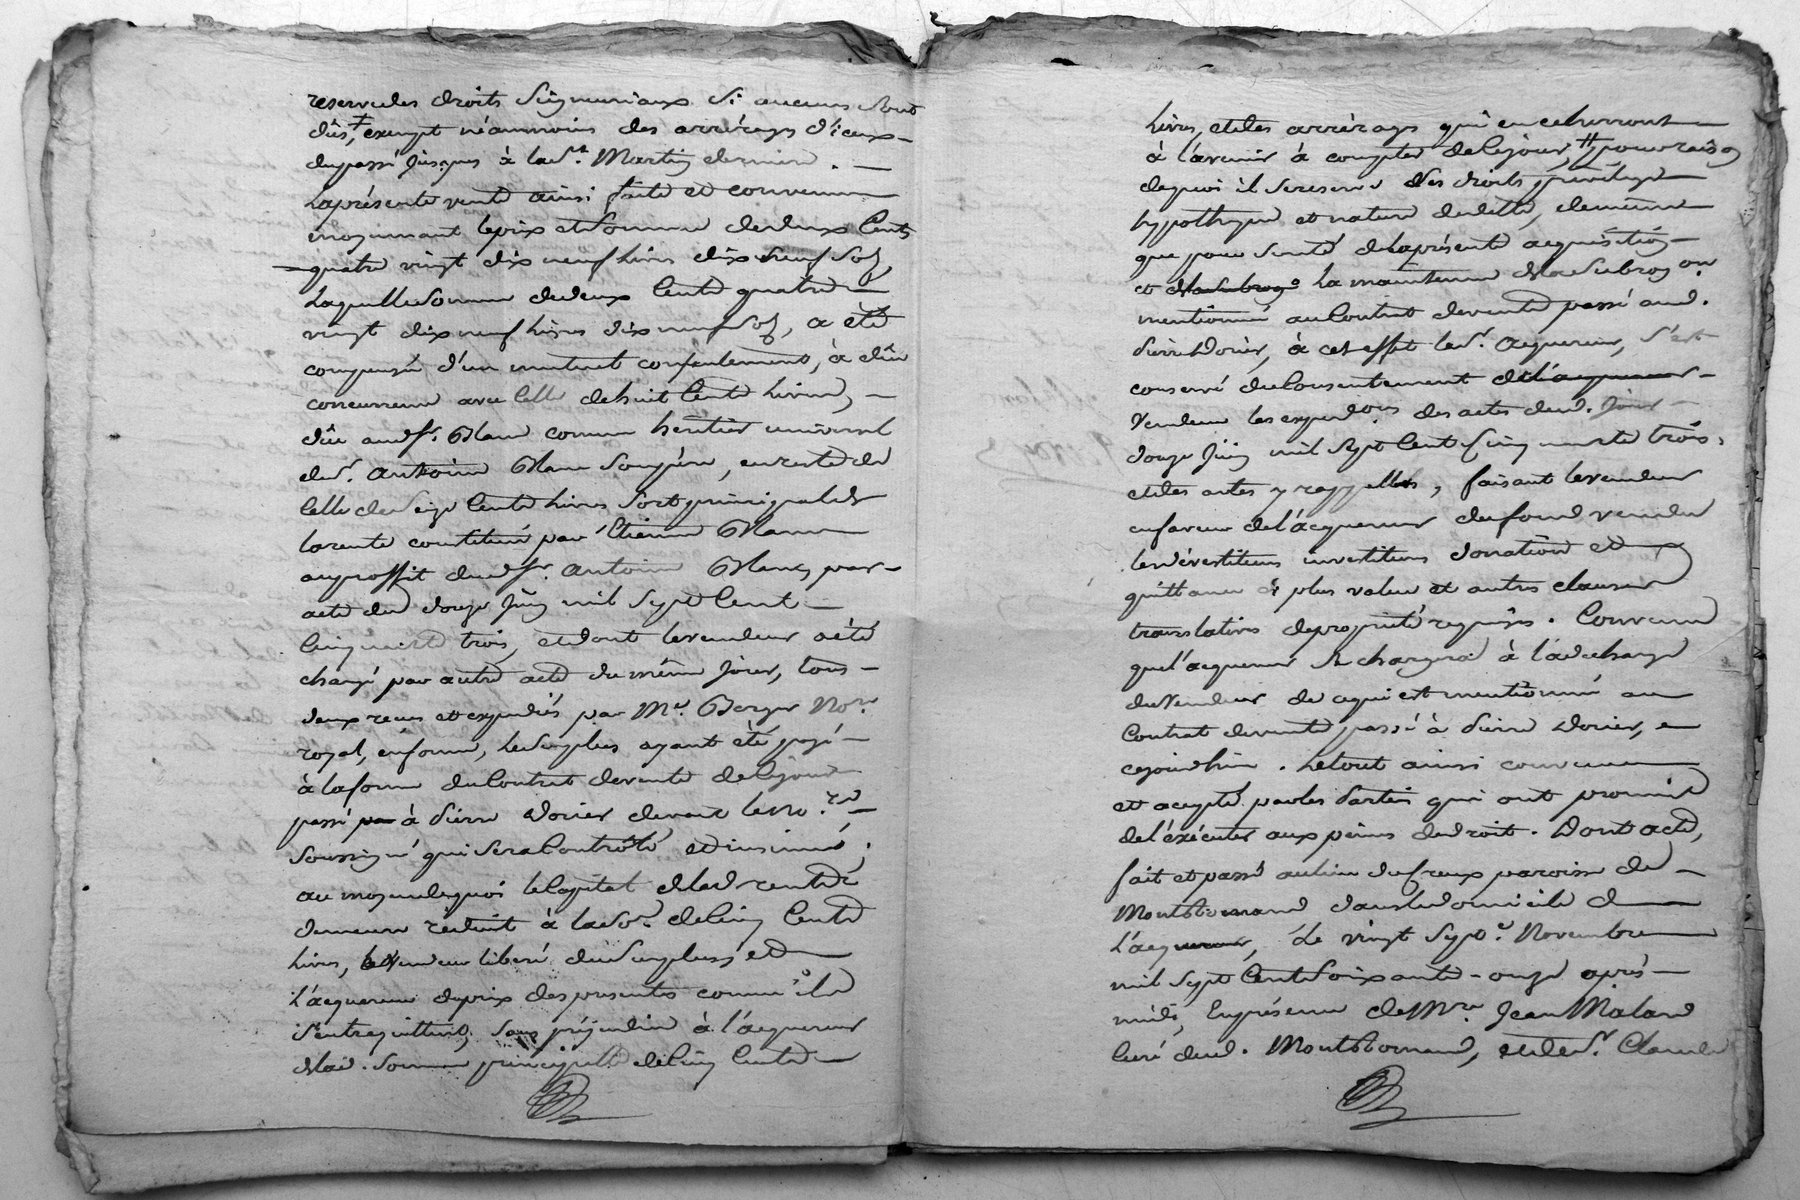 reserve des droits Seigneuriaux Si aucuns Sont
dûs, exempt néanmoins des arrérages d'iceux
du passé Jusques à la St. Martin dernier.
La présente vente ainsi faite et convenue
moyennant le prix et Somme de deux Cents
quatre vingt dix neuf livres dix neuf Sols,
Laquelle Somme de deux Cents quatre
vingt dix neuf livres dix neuf Sols, a été
compensée d'un mutuel consentement, à dûe
concurrence avec celle de huit Cents livres,
dûe aud. Sr. Blanc comme heritier universel
de Sr. Antoine Blanc Son père, en reste de
Celle de Seize Cents livres Sort principal de
la rente constituée par Etienne Blanc
au proffit dud. Sr. Antoine Blanc, par
acte du douze Juin mil Sept Cent
Cinquante trois, et dont le vendeur a été
chargé par autre acte du même Jour, tous
deux reçus et expediés par Me. Berger Nore.
royal, en forme, Le Surplus ayant été payé
à la forme du Contrat de vente de Ce jour
passé à Pierre Dorier devant le no.re
Soussigné qui Sera Contrôlé et insinué,
au moyen de quoi le Capital de lad. rente
demeure réduit à la So.e de Cinq Cents
livres, le vendeur liberé du Surplus, et
L'acquereur du prix des presentes comme ils
S'entrequittent, Sans préjudice à l'acquereur
de lad. Somme principale de Cinq Cents
livres, et des arrérages qui en echerront
à l'avenir à compter de Ce jour, # pour raison
de quoi il Se reserve Ses droits, privilege
hypotheque et nature de dette, de même
que pour Sureté de la présente acquisition
et de la Subrog.on La maintenue de la Subrog.on
mentionné au Contrat de vente passé aud.
Pierre Dorier, à cet effet led. Sr. acquereur, S'est
conservé du Consentement de l'acquereur
Vendeur les expeditions des actes dud. Jour
douze Juin mil Sept Cent Cinquante trois,
et des actes y rappellés, faisant le vendeur
en faveur de l'acquereur du fond vendu
les dévestitures investitures donation et
quittance de plus value et autres clauses
translatives de propriété requises. Convenu
que l'acquereur Se chargera à la decharge
du Vendeur de ce qui est mentionné au
Contrat de vente passé à Pierre Dorier, ce
cejourd'hui. Le tout ainsi convenu
et accepté par les Parties qui ont promis
de l'éxécuter aux peines de droit. Dont acte,
fait et passé au lieu du freux paroisse de
Montromand dans le domicile de
L'acquereur, Le vingt Sept.e Novembre
mil Sept Cent Soixante-onze après
midi, En présence de Mre. Jean Malard
Curé dud. Montromand, et de Sr. Claude